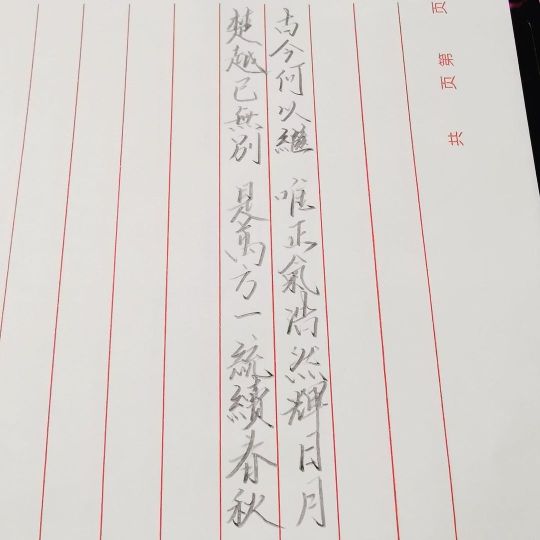 共 页 第 页
古今何以繼 唯正氣浩然輝日月
楚越已無別 是萬方一統續春秋